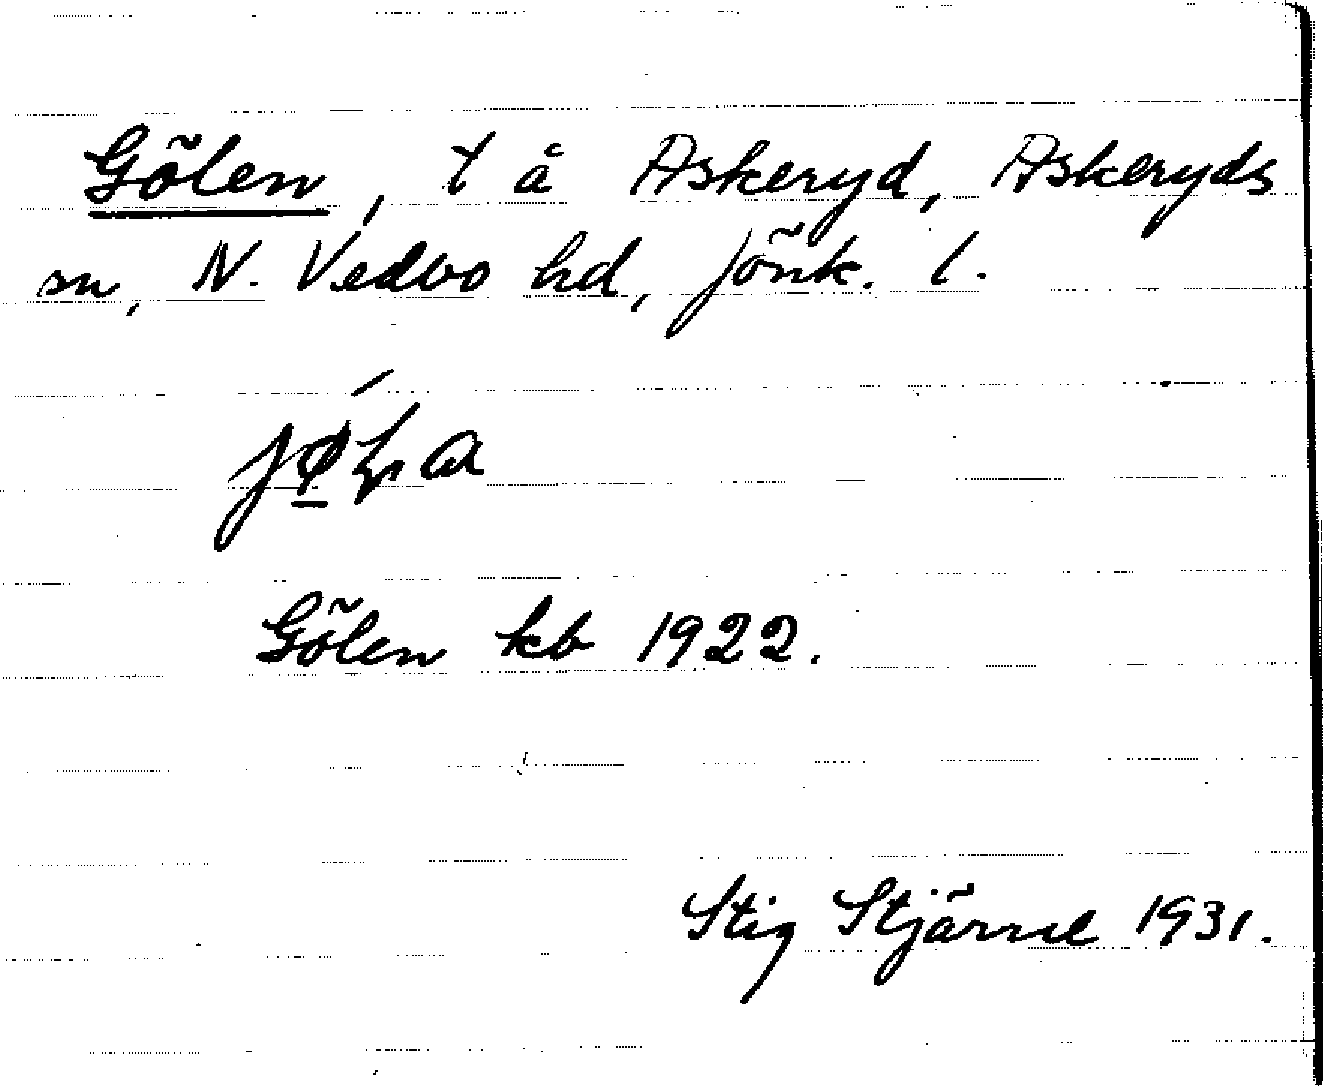 Gölen, t å Askeryd, Askeryds
sn, N. Vedbo hd, Jönk. l.
Gölen kb 1922.
Stig Stjärne 1931.